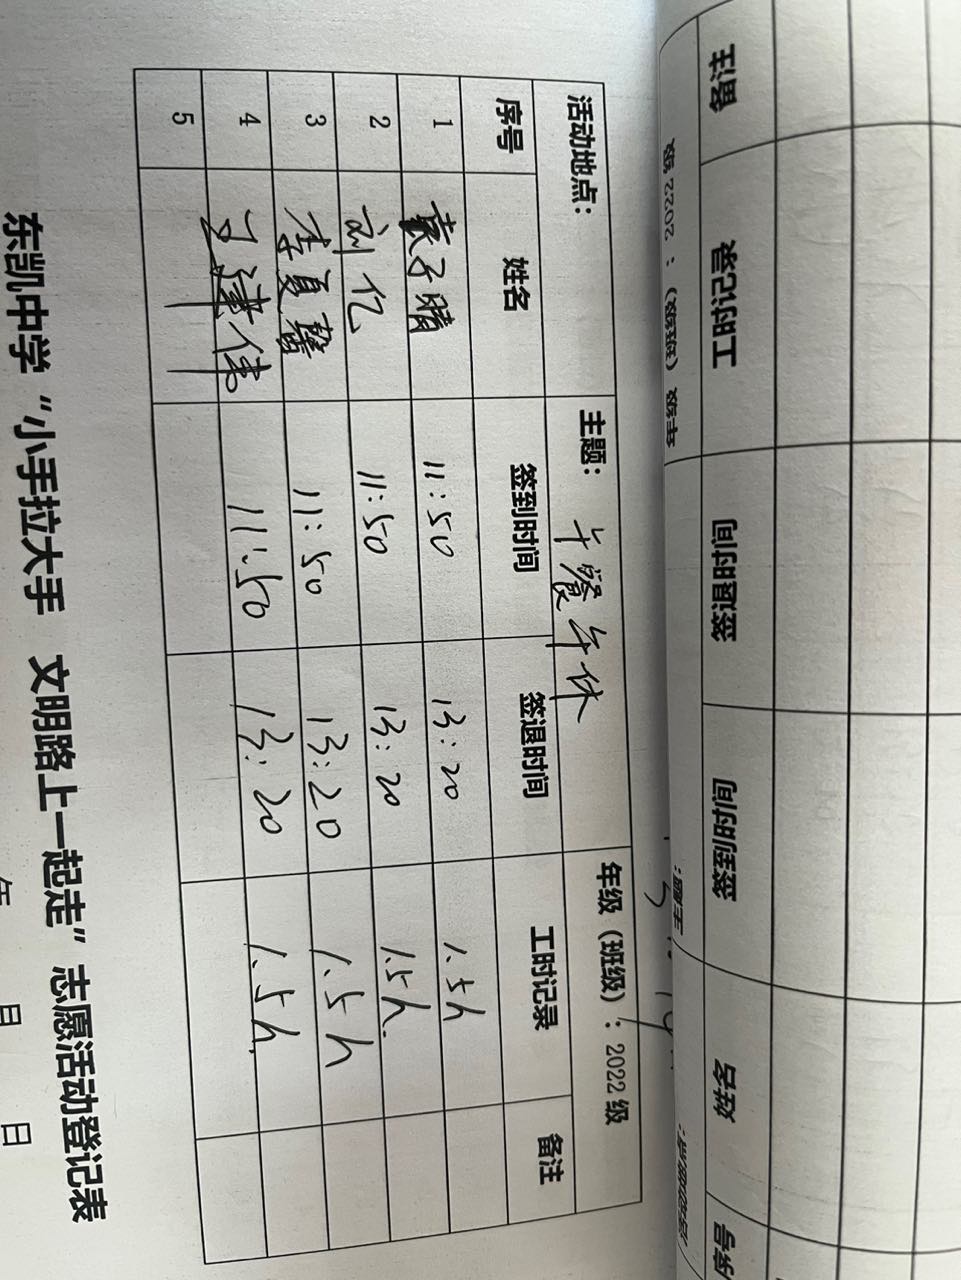 东凯中学“小手拉大手 文明路上一起走”志愿活动登记表
年 月 日
活动地点： 主题： 午餐午休 年级（班级）：2022级
序号 姓名 签到时间 签退时间 工时记录 备注
1 袁子晴 11:50 13:20 1.5h
2 刘亿 11:50 13:20 1.5h.
3 李夏馨 11:50 13:20 1.5h
4 11:50 13:20 1.5h.
5
活动地点： 主题： 年级（班级）：2022级
序号 姓名 签到时间 签退时间 工时记录 备注